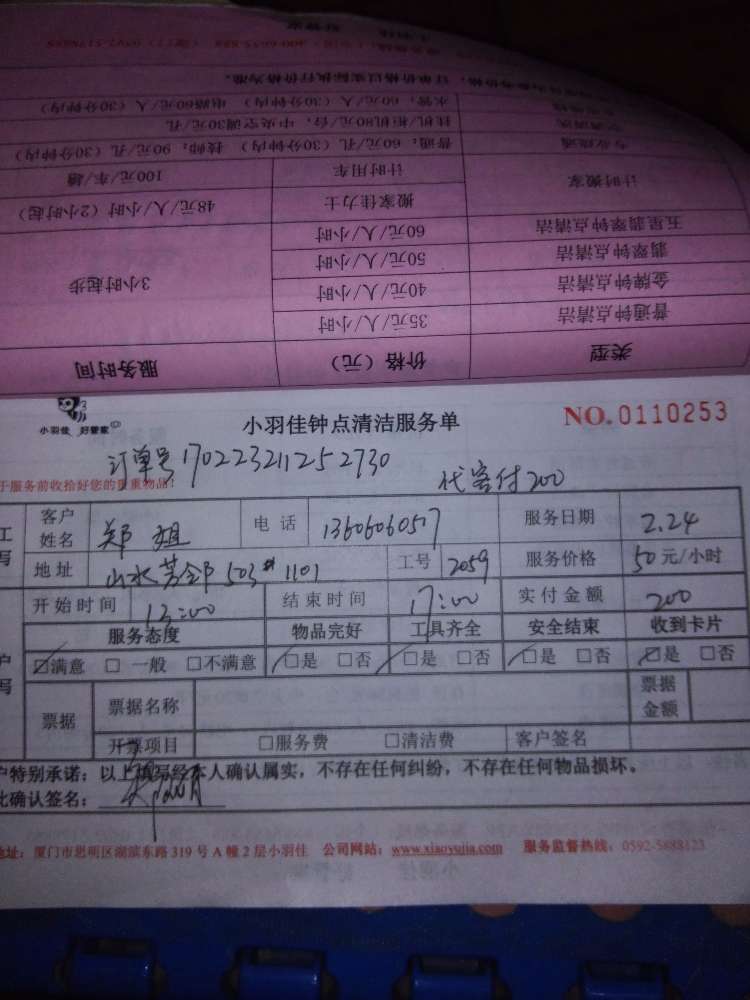 订单价格以实际执行价格为准。
水管，60元/人（30分钟内） 电路60元/人（30分钟内）
挂机/柜机80元/台，中央空调30元/孔
专业疏通 普通：60元/孔（30分钟内） 技师：90元/孔（30分钟内）
计时搬家 计时用车 100元/车/趟
搬家佳力士 48元/人/小时（2小时起）
五星翡翠钟点清洁 60元/人/小时
翡翠钟点清洁 50元/人/小时
金牌钟点清洁 40元/人/小时 3小时起步
普通钟点清洁 35元/人/小时
类型 价格（元） 服务时间
小羽佳 好管家
小羽佳钟点清洁服务单
NO. 0110253
订单号170223211252730
代客付200
于服务前收拾好您的贵重物品！
客户姓名 郑姐 电话 1360606057 服务日期 2.24
地址 山水芳邻503#1101 工号 2059 服务价格 50元/小时
开始时间 13:00 结束时间 17:00 实付金额 200
服务态度 物品完好 工具齐全 安全结束 收到卡片
☑满意 □一般 □不满意 □是 □否 □是 □否 □是 □否 □是 □否
票据 票据名称 票据金额
开票项目 □服务费 □清洁费 客户签名
户特别承诺：以上填写经本人确认属实，不存在任何纠纷，不存在任何物品损坏。
此确认签名：
地址：厦门市思明区湖滨东路319号A幢2层小羽佳 公司网站：www.xiaoyujia.com 服务监督热线：0592-5888123